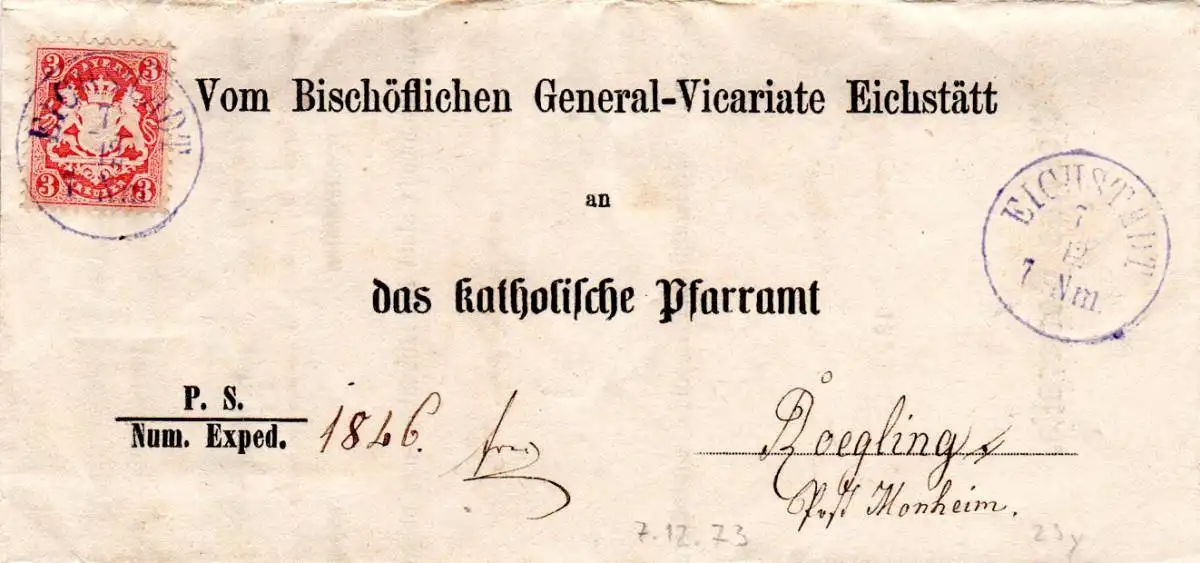 3 BAYERN 3
3 KREUZER 3
Vom Bischöflichen General-Vicariate Eichstätt
an
das katholische Pfarramt
EICHSTÆDT
7
12
7 Nm.
P. S.
Num. Exped. 1846. frei
Roegling
Post Monheim.
7.12.73
23y